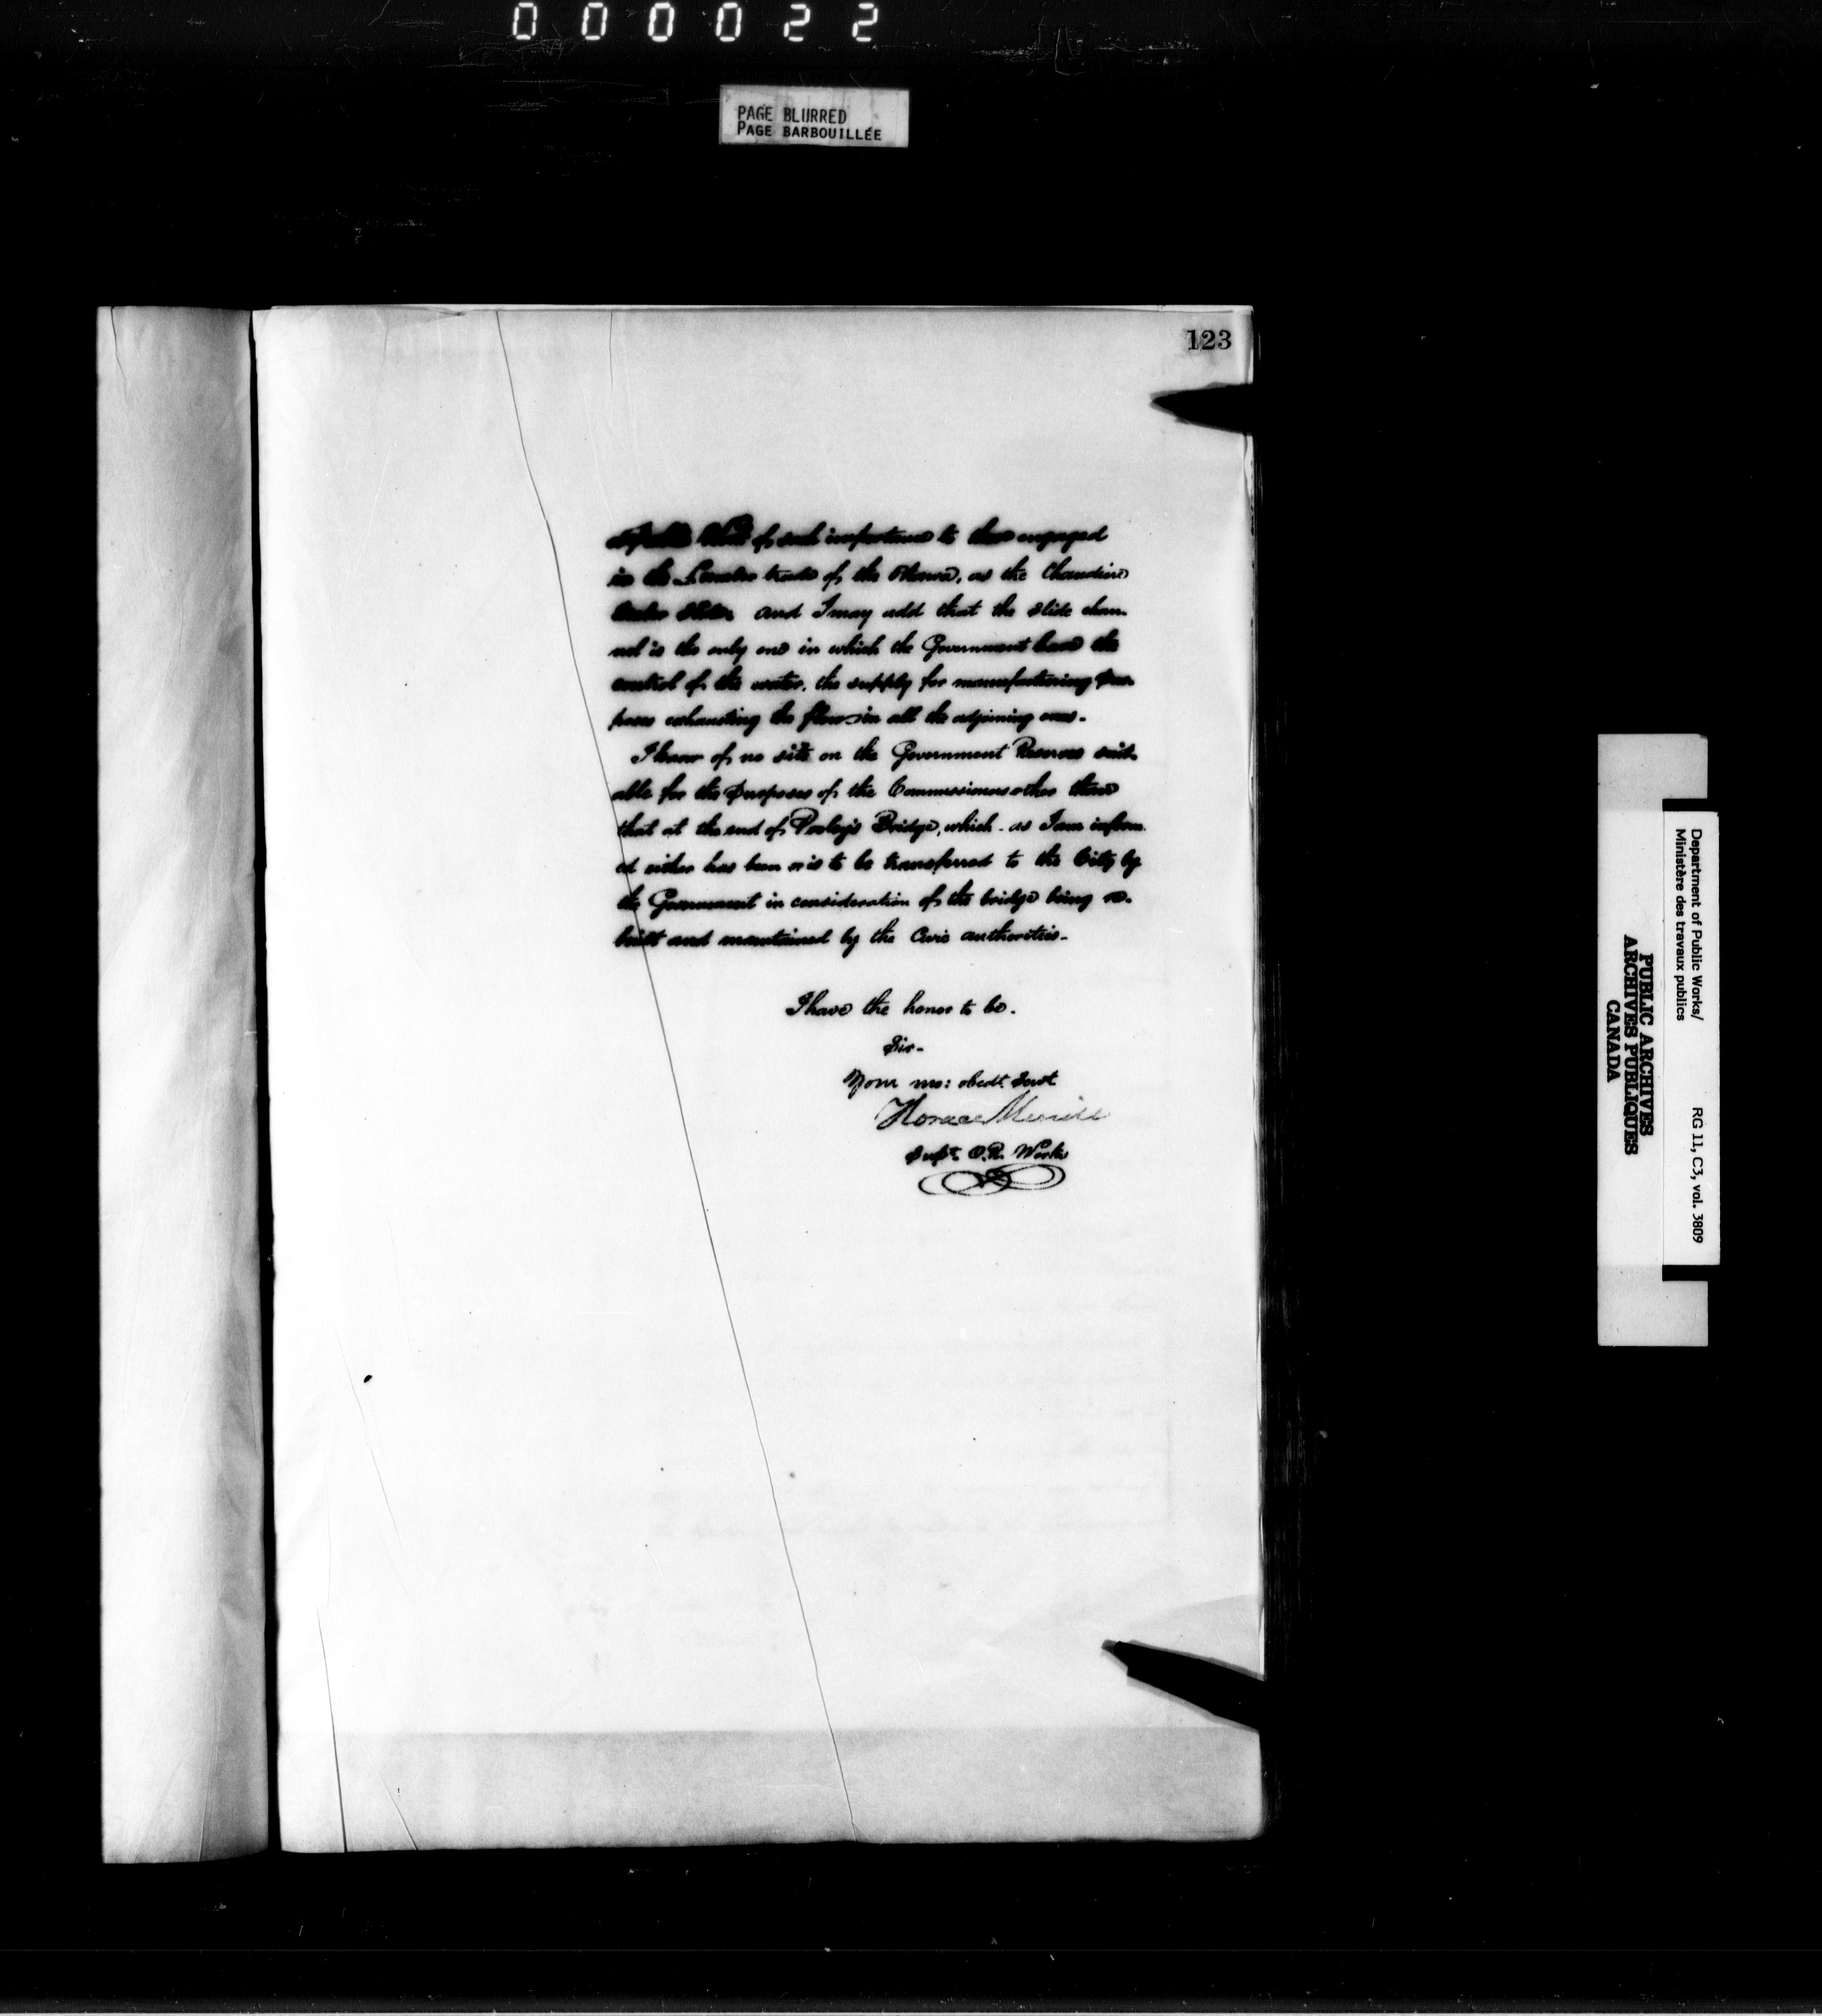 000022
PAGE BLURRED
PAGE BARBOUILLÉE
123
Public Work of such importance to those engaged
in the Lumber trade of the Ottawa, as the Chaudiere
and I may add that the Slide chan-
nel is the only one in which the Government have the
control of the water, the supply for manufacturing Pur-
poses exhausting the flow in all the adjoining ones.
I know of no site on the Government Reserves suit-
able for the Purposes of the Commissioners other than
that at the end of Pooley's Bridge, which - as I am inform-
ed either has been or is to be transferred to the City by
the Government in consideration of the bridge being re-
built and maintained by the Civic authorities.
I have the honor to be.
Sir-
Your mo: obedt. Servt
Horace Merrill
Supt. O.R. Works
Department of Public Works/
Ministère des travaux publics
RG 11, C3, vol. 3809
PUBLIC ARCHIVES
ARCHIVES PUBLIQUES
CANADA